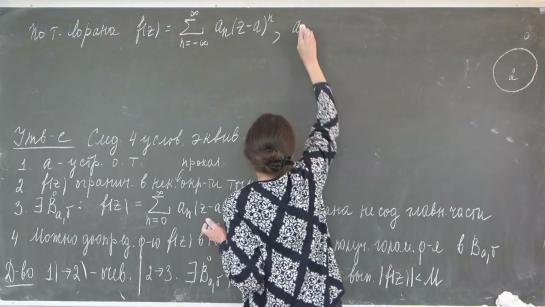 По т. Лорана f(z) = ∑_{n=-∞}^{∞} a_n(z-a)^n, a
a
Утв-е След 4 услов. эквив
1. a - устр. о. т. прокол.
2 f(z) огранич. в нек. окр-ти
3. ∃ B_{a,r}: f(z) = ∑_{n=0}^{∞} a_n(z-a) не сод главн. части
4. Можно доопред. ф-ю f(z) в получ. голом. ф-я в B_{a,r}
Д-во 1)→2) - очев. | 2→3. ∃ B_{a,r} вып. |f(z)|<M